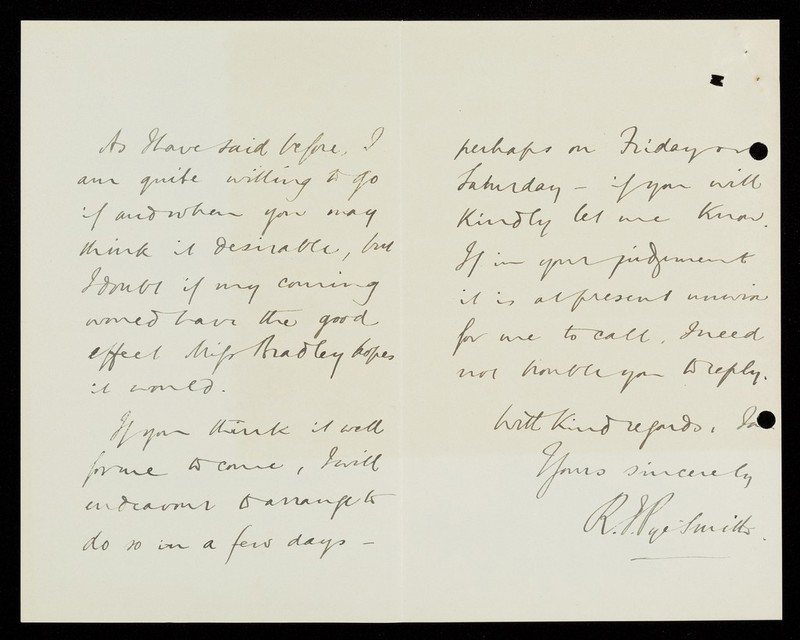 As I have said before, I
am quite willing to go
if and when you may
think it desirable, but
I doubt if my coming
would have the good
effect Miss Bradley hopes
it would.
If you think it well
for me to come, I will
endeavour to arrange to
do so in a few days –
perhaps on Friday or
Saturday – if you will
kindly let me know.
If in your judgment
it is at present unwise
for me to call, I need
not trouble you to reply.
With kind regards, I am
Yours sincerely
R. J. Pye-Smith.